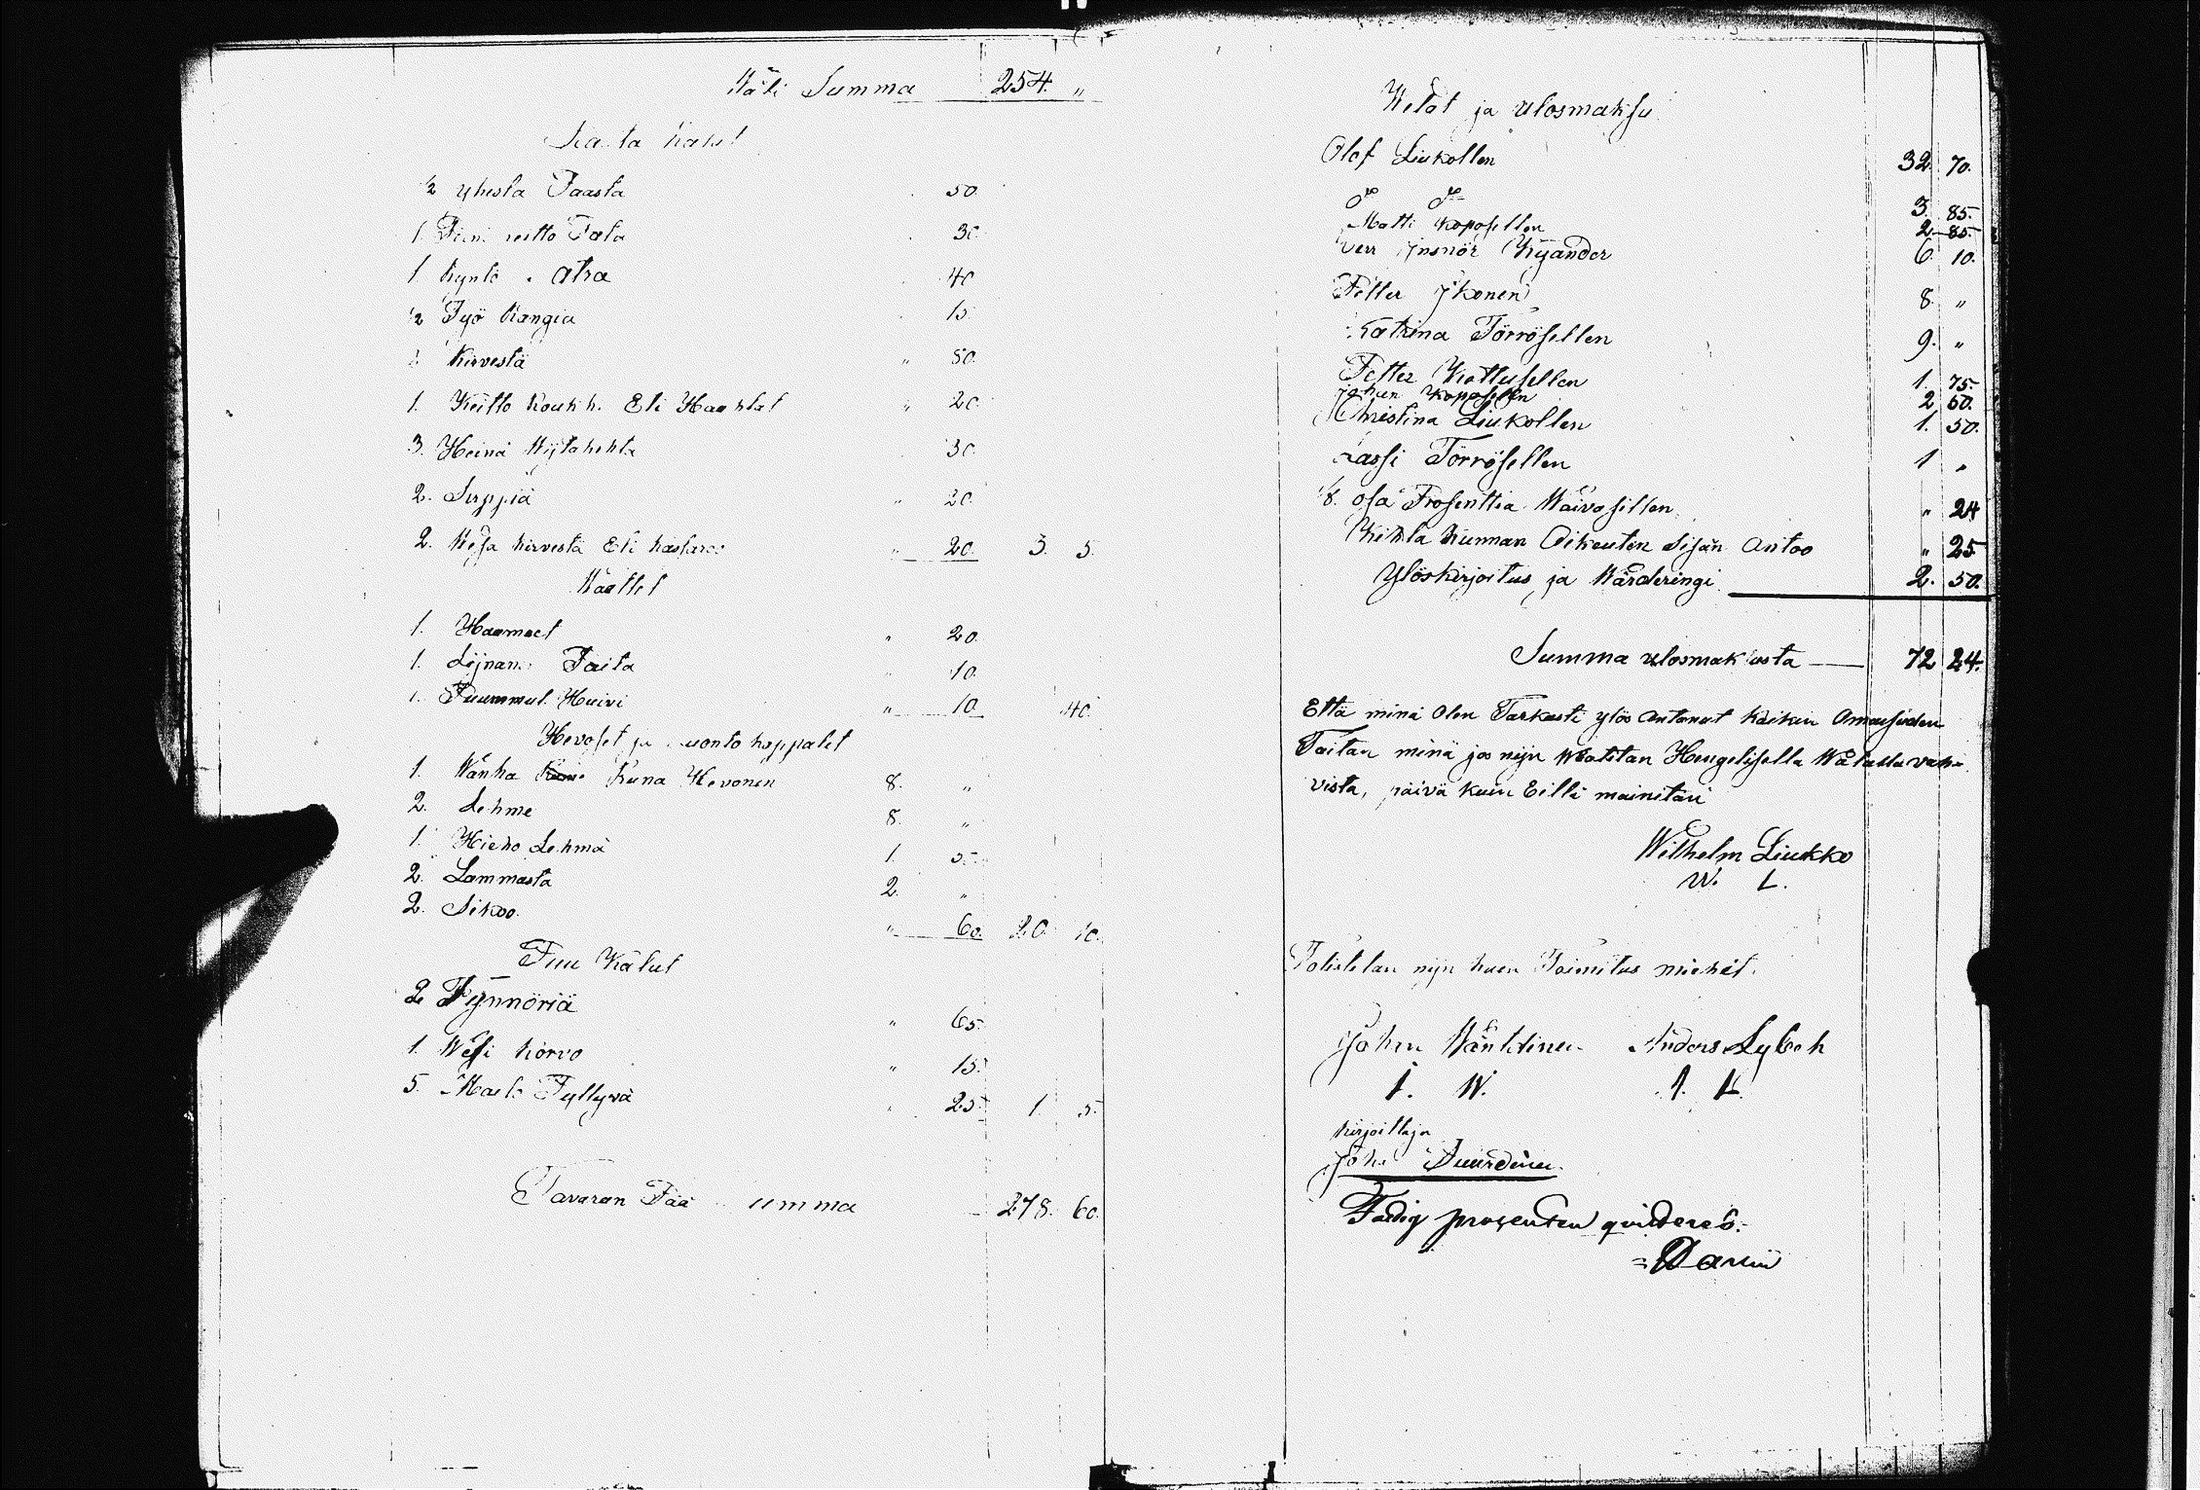 Wäli Summa 254. "
Rauta kalut
½ yhestä Paasta 50.
1. Pieni keitto Pata 30
1 kyntö atra 40
½ Työ kangia 15
kirvestä " 50.
1. Keitto koukku Eli Haahlat " 20.
3. Heinä Wijtahehta 30.
2. Sirppiä " 20.
2. Wesa kirvestä Eli kassara " 20. 3. 5.
Waattet
1. Haameet " 20.
1. Lijnane Paita 10.
1. Puummul Huivi " 10. 40.
Hevoset ja luonto kappalet
1. Wanha Runa Hevonen 8. "
2. Lehmä 8. "
1. Hieho Lehmä 1. 50.
2. Lammasta 2. "
2. Sikoo. " 60. 20. 10.
Puu Kalut
2 Tynnöriä " 65.
1. Wesi korvo " 15.
5. Maito Pyttyvä 25. 1. 5.
Tavaran Pää summa 278. 60.
Welat ja ulosmaksu
Olof Liukollen 32. 70.
d:o d:o 3. 85.
Matti Koposellen 2. 85.
Herr Insinör Kyander 6. 10.
Petter Ikonen 8. "
Katrina Törrösellen 9. "
Petter Kiattusellen 1. 75.
Johan Koposellen 2 50.
Christina Liukollen 1. 50.
Lassi Törrösellen 1 "
1/8. osa Prosenttia Waivasillen " 24
Kihla kunnan Oikeuten sisän Antoo " 25
Ylöskirjoitus ja Wärderingi 2. 50.
Summa ulosmaksusta 72 24.
Että minä Olen Tarkasti ylös Antanut kaiken Omaisuden
Taitan minä jos nijn Watitan Hengelisellä Walalla vahvista,
päivä kuin Eillä mainitan
Wilhelm Liukko
W. L.
Totistetan nijn kuin Toimitus miehet.
Johan Wäntdinen Anders Lybeck
I. W. A. L.
kirjoittaja
Joh. Duurdinen.
Fattig procenten qvitteres.